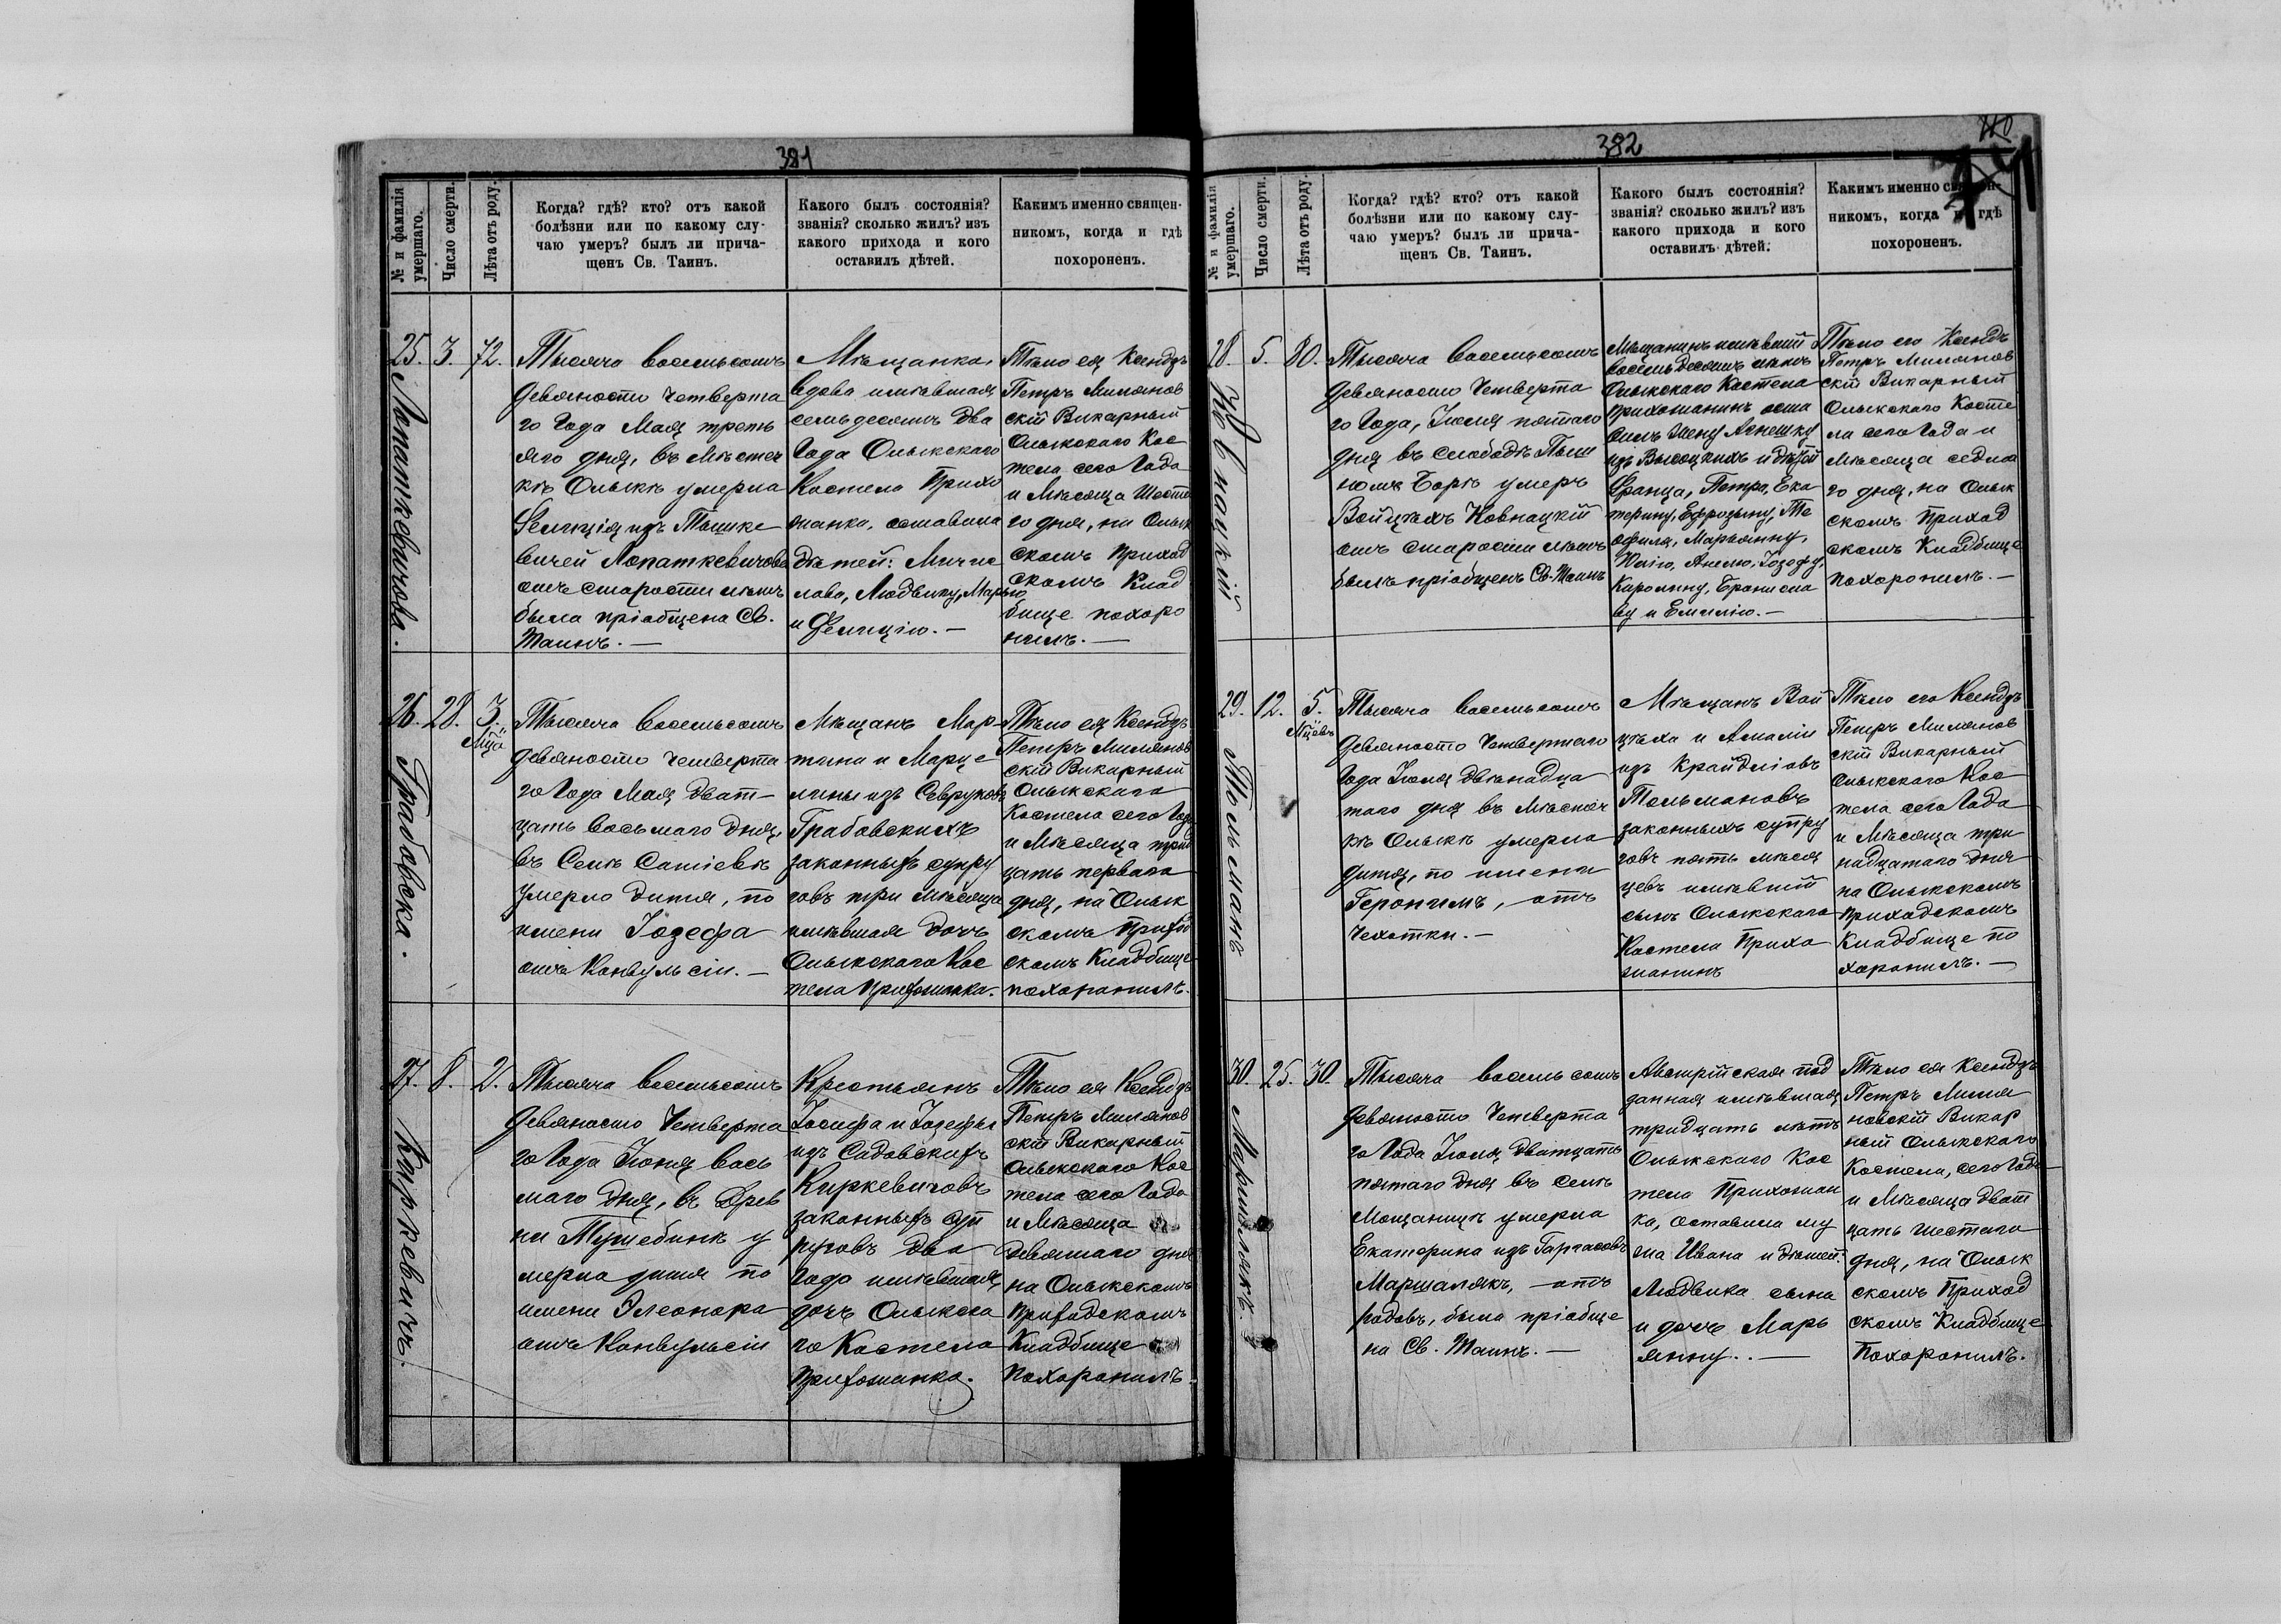 381
№ и фамилія умершаго.
Число смерти.
Лѣта отъ роду.
Когда? гдѣ? кто? отъ какой
болѣзни или по какому слу-
чаю умеръ? былъ ли прича-
щенъ Св. Таинъ.
Какого былъ состоянія?
званія? сколько жилъ? изъ
какого прихода и кого
оставилъ дѣтей.
Какимъ именно священ-
никомъ, когда и гдѣ
похороненъ.
25.
Лопаткевичова.
3.
72.
Тысяча восемьсотъ
девяносто четверта
го Года Мая треть
яго дня, въ Мѣстеч
кѣ Олыкѣ умерла
Фелиція изъ Тышке
вичей Лопаткевичова
отъ старости лѣтъ
была пріобщена Св.
Таинъ. —
Мѣщанка,
вдова имѣвшая
семьдесятъ два
Года Олыкскаго
Костела Прихо
жанка, оставила
дѣтей: Мечис
лава, Людвику, Марью
и Фелицію. —
Тѣло ея Ксендзъ
Петръ Миляновъ
скій Викарный
Олыкскаго Кос
тела сего Года
и Мѣсяца Шесто
го дня, на Олык
скомъ Приход
скомъ Клад
бище похоро
нилъ. —
26.
Грабовска.
28.
3.
Мца
Тысяча восемьсотъ
девяносто четверта
го Года Мая дват-
цать восьмаго дня,
въ Селѣ Сатіевѣ
умерло дитя, по
имени Іозефа
отъ Конвульсіи. —
Мѣщанъ Мар-
тина и Марце
лины изъ Севруковъ
Грабовскихъ
законныхъ супру
говъ три мѣсяца
имѣвшая дочь
Олыкскаго Кос
тела прихожанка.
Тѣло ея Ксендзъ
Петръ Миляновъ
скій Викарный
Олыкскаго
Костела сего Года
и Мѣсяца трид
цать перваго
дня, на Олык
скомъ Приход
скомъ Кладбище
похоронилъ.
27.
Киркевичъ.
8.
2.
Тысяча восемьсотъ
девяносто Четверта
го Года Іюня вось
маго дня, въ Древ
ни Тушебинѣ у
мерла дитя по
имени Элеонора
отъ Конвульсіи
Крестьянъ
Іосифа и Іозефы
изъ Садовскихъ
Киркевичовъ
законныхъ суп
руговъ два
года имѣвшая,
дочь Олыкска
го Костела
прихожанка.
Тѣло ея Ксендзъ
Петръ Миляновъ
скій Викарный
Олыкскаго Кос
тела сего Года
и Мѣсяца
девятаго дня
на Олыкскомъ
приходскомъ
Кладбище
похоронилъ.
382
№ и фамилія умершаго.
Число смерти.
Лѣта отъ роду.
Когда? гдѣ? кто? отъ какой
болѣзни или по какому слу-
чаю умеръ? былъ ли прича-
щенъ Св. Таинъ.
Какого былъ состоянія?
званія? сколько жилъ? изъ
какого прихода и кого
оставилъ дѣтей.
Какимъ именно священ-
никомъ, когда и гдѣ
похороненъ.
28.
Ковнацкій
5.
80.
Тысяча восемьсотъ
девяносто Четверта
го Года, Іюля пятаго
дня въ слободѣ Пыш
номъ Борѣ умеръ
Войцехъ Ковнацкій
отъ старости лѣтъ
былъ пріобщенъ Св. Таинъ
Мѣщанинъ имѣвшій
восемьдесятъ лѣтъ
Олыкского Костела
прихожанинъ оста
вилъ Жену Агнешку
изъ Высоцкихъ и дѣтей
Франца, Петра, Ека
терину, Ефрозыну, Те
офиля, Марьянну,
Юлію, Анелю, Іозефу,
Каролину, Брониса
ву и Емилію. —
Тѣло его Ксендзъ
Петръ Миляновъ
скій Викарный
Олыкскаго Косте
ла сего Года и
Мѣсяца седма
го дня, на Олык
скомъ Приход
скомъ Кладбище
похоронилъ. —
29.
Тольманъ
12.
5.
Мцевъ
Тысяча восемьсотъ
девяносто Четвертаго
Года Іюля двенадца
таго дня въ Мѣстеч
кѣ Олыкѣ умерла
дитя, по имени
Геронимъ, отъ
Чехотки. —
Мѣщанъ Вой
цѣха и Амаліи
изъ Крайдліовъ
Тольмановъ
законныхъ супру
говъ пять мѣся
цевъ имѣвшій
сынъ Олыкскаго
Костела Прихо
жанинъ
Тѣло его Ксендзъ
Петръ Миляновъ
скій Викарный
Олыкскаго Кос
тела сего Года
и Мѣсяца три
надцатаго дня
на Олыкскомъ
Приходскомъ
Кладбище по
хоронилъ. —
30.
Маршалякъ.
25.
30.
Тысяча восемьсотъ
девяносто Четверта
го Года Іюля двадцать
пятаго дня въ селѣ
Мощаницѣ умерла
Екатерина изъ Гаргасовъ
Маршалякъ, — отъ
родовъ, была пріобще
на Св. Таинъ. —
Австрійская под
данная имѣвшая
тридцать лѣтъ
Олыкскаго Кос
тела Прихожан
ка, оставила му
жа Ивана и дѣтей:
Людвика сына
и дочь Марь
янну. . —
Тѣло ея Ксендзъ
Петръ Миля
новскій Викар
ный Олыкскаго
Костела, сего Года
и Мѣсяца дват
цать шестаго
дня, на Олык
скомъ Приход
скомъ Кладбище
Похоронилъ.